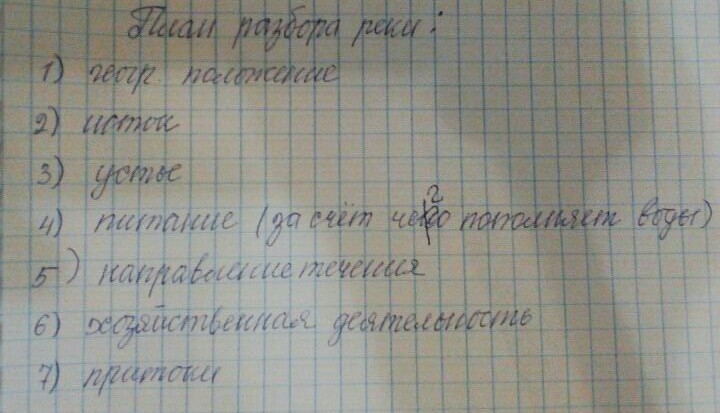 План разбора реки:
1) геогр. положение
2) исток
3) устье
4) питание (за счёт чего пополняет воды)
5) направление течения
6) хозяйственная деятельность
7) притоки